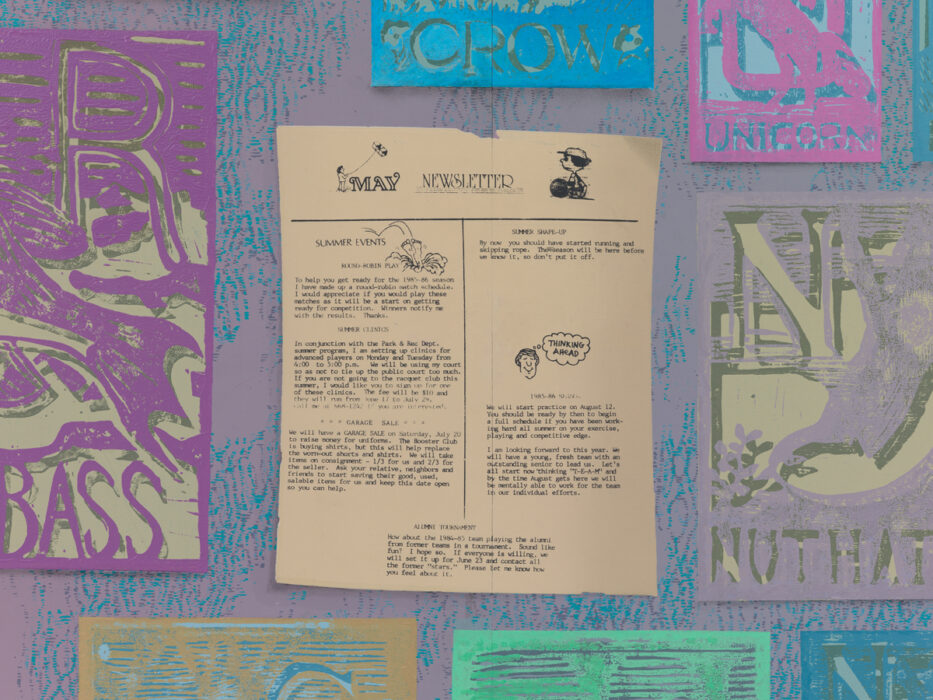 CROW
UNICORN
R
BASS
N
NUTHAT
MAY NEWSLETTER
SUMMER EVENTS
ROUND-ROBIN PLAY
To help you get ready for the 1985-86 season
I have made up a round-robin match schedule.
I would appreciate if you would play these
matches as it will be a start on getting
ready for competition. Winners notify me
with the results. Thanks.
SUMMER CLINICS
In conjunction with the Park & Rec Dept.
summer program, I am setting up clinics for
advanced players on Monday and Tuesday from
4:00 to 5:00 p.m. We will be using my court
so as not to tie up the public court too much.
If you are not going to the racquet club this
summer, I would like you to sign up for one
of these clinics. The fee will be $10 and
they will run from June 17 to July 29.
Call me at if you are interested.
* * * GARAGE SALE * * *
We will have a GARAGE SALE on Saturday, July 20
to raise money for uniforms. The Booster Club
is buying shirts, but this will help replace
the worn-out shorts and shirts. We will take
items on consignment - 1/3 for us and 2/3 for
the seller. Ask your relative, neighbors and
friends to start saving their good, used,
salable items for us and keep this date open
so you can help.
SUMMER SHAPE-UP
By now you should have started running and
skipping rope. The season will be here before
we know it, so don't put it off.
THINKING
AHEAD
1985-86
We will start practice on August 12.
You should be ready by then to begin
a full schedule if you have been work-
ing hard all summer on your exercise,
playing and competitive edge.
I am looking forward to this year. We
will have a young, fresh team with an
outstanding senior to lead us. Let's
all start now thinking "T-E-A-M" and
by the time August gets here we will
be mentally able to work for the team
in our individual efforts.
ALUMNI TOURNAMENT
How about the 1984-85 team playing the alumni
from former teams in a tournament. Sound like
fun? I hope so. If everyone is willing, we
will set it up for June 23 and contact all
the former "stars." Please let me know how
you feel about it.
N